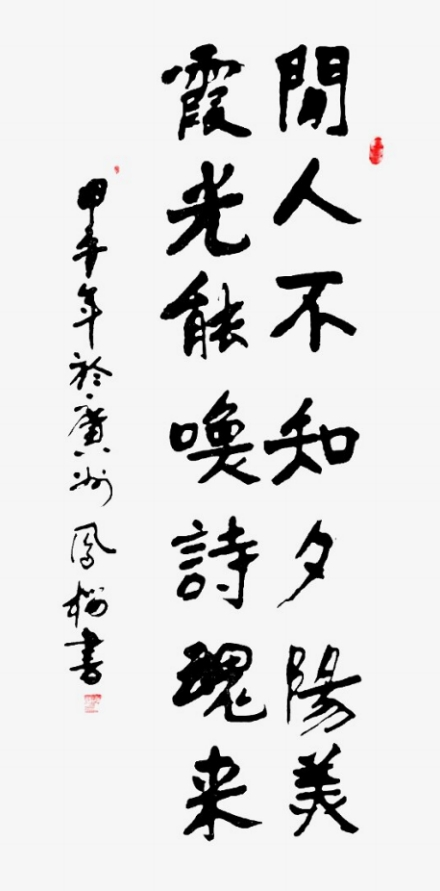 閒人不知夕陽美
霞光能喚詩魂来
甲午年於廣州 鳳書